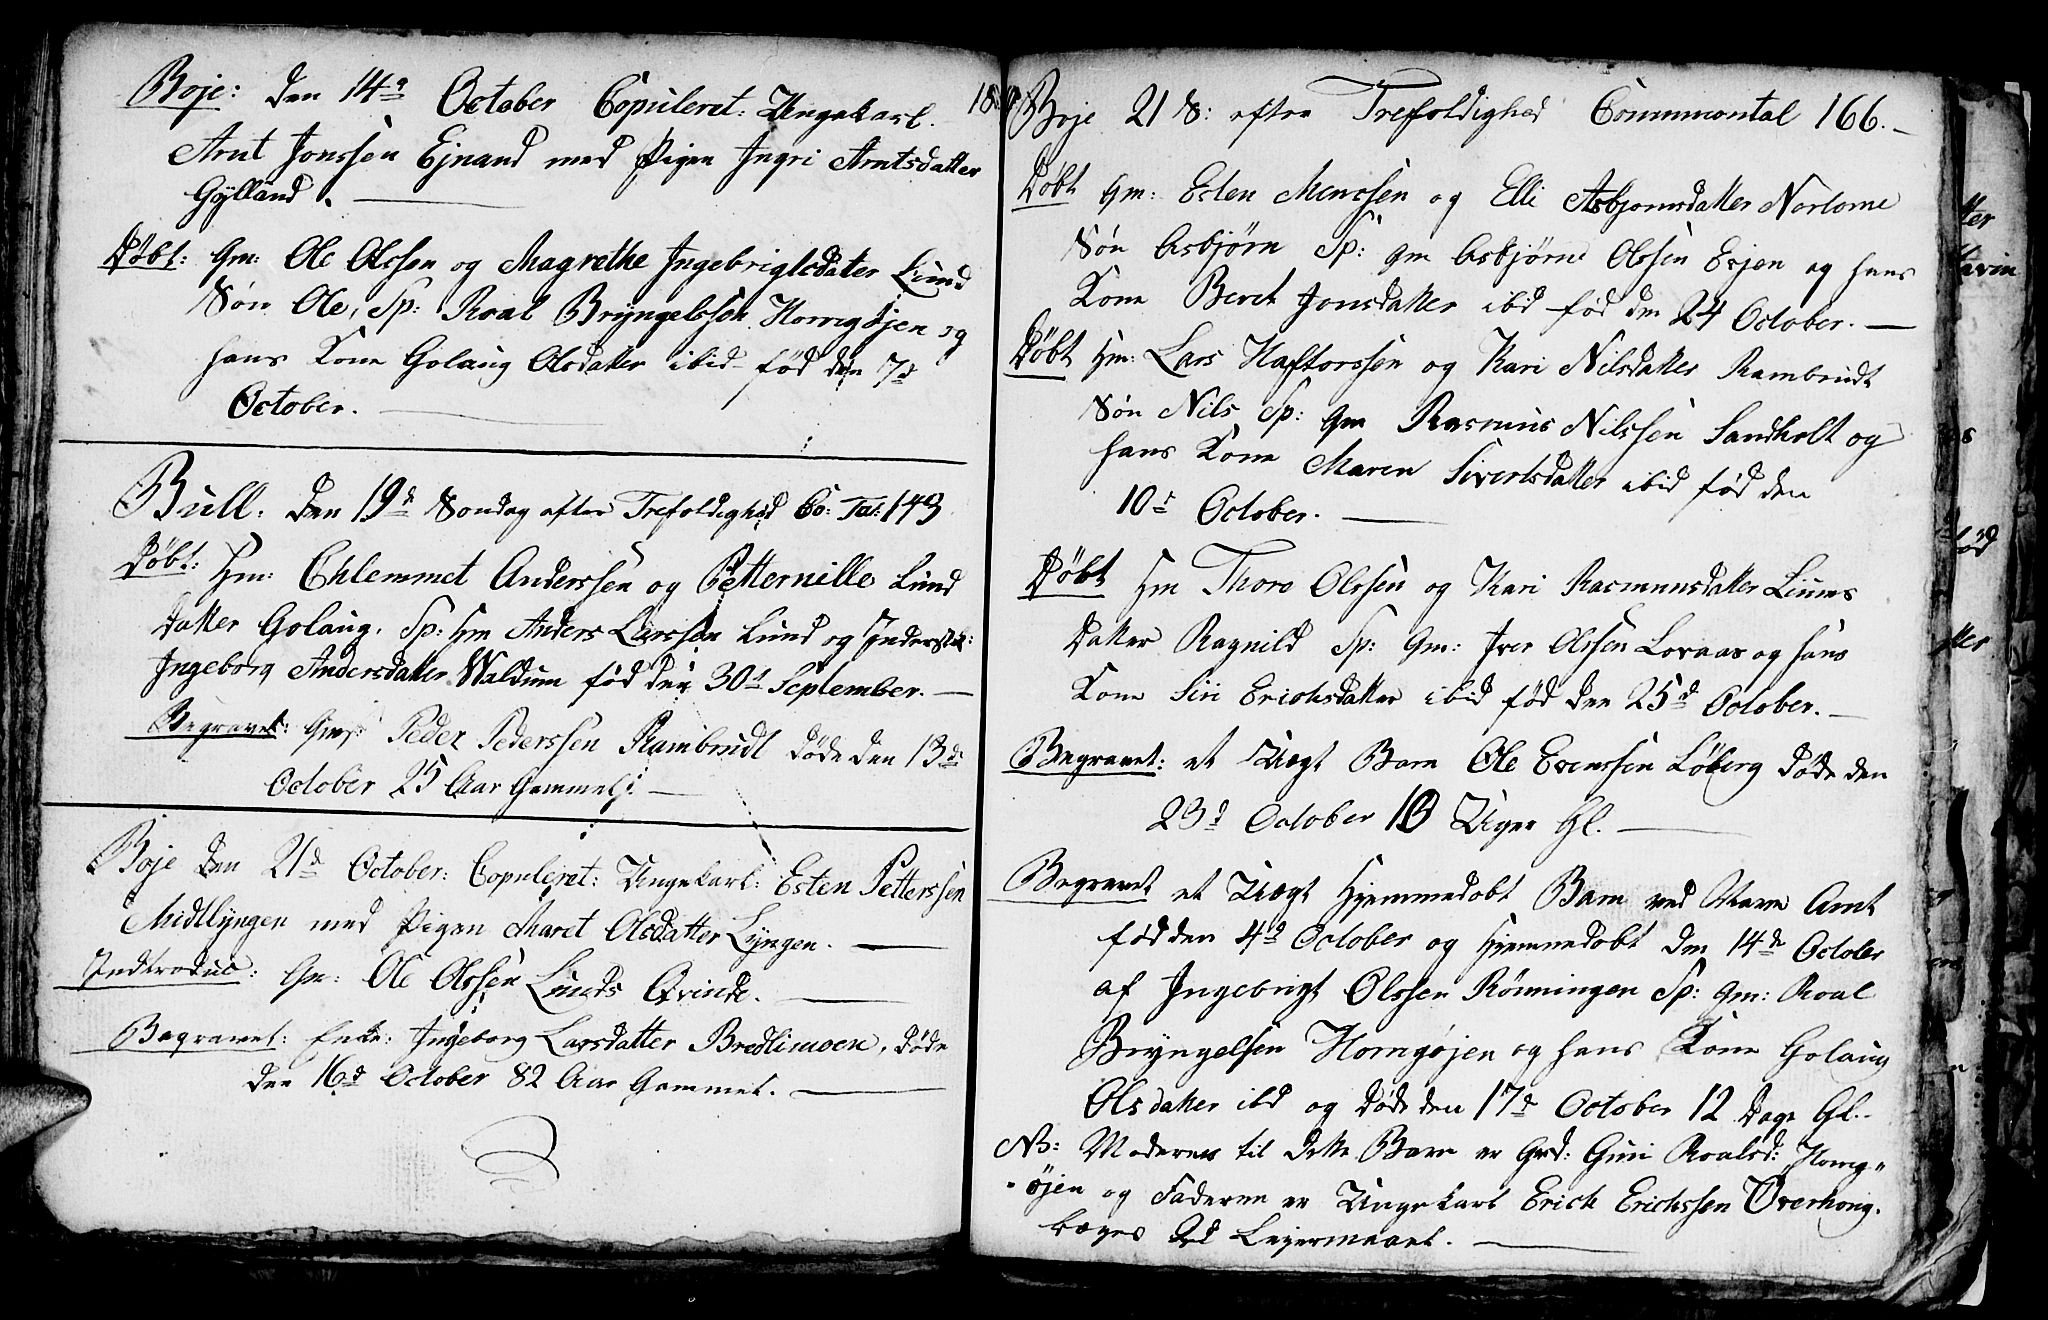 Boje: den 14de October Copuleret: Ungekarl.
Arnt Jonssen Ejnand med Pigen Ingri Arntsdatter
Gylland.
Døbt: Gm: Ole Olssen og Magrethe Ingebrigtsdater Lund
Søn Ole, Sp: Roal Bryngelssen Horrigøjen og
hans Kone Golaug Olsdatter ibid fød den 7d
October.
Bull. Den 19de Søndag efter Trefoldighed Co: Tal: 143
Døbt: Hm: Chlemmet Anderssen og Petternille Lund
datter Golaug. Sp: Hm Anders Larssen Lund og
Ingeborg Andersdatter Waldum fød den 30d September.
Begravet: Gms: Peder Pederssen Rambrudt døde den 13d
October 25 Aar Gammel.
Boje den 21d October: Copuleret: Ungekarl: Esten Petterssen
Midtlyngen med Pigen Maret Olsdatter Lyngen.
Indtroduc: Gm: Ole Olssen Lunds Qvinde.
Begravet: Enke: Ingeborg Larsdatter Bredlimoen, døde
den 16d October 82 Aar Gammel.
Boje 21 S: efter Trefoldighed Communtal 166.
Døbt Gm: Esten Monssen og Elli Asbjornsdatter Norlome
Søn Asbjørn Sp: Gm Asbjørn Olssen Esjen og hans
Kone Beret Jonsdatter ibid fød den 24 October.
Døbt Hm: Lars Haftorssen og Kari Nilsdatter Rambrudt
Søn Nils Sp: Gm Rasmus Nilssen Sandholt og
hans Kone Maren Sivertsdatter ibid fød den
10d October.
Døbt Hm Thore Olssen og Kari Rasmunsdatter Liums
datter Ragnild Sp: Gm: Iver Olssen Lovaas og hans
Kone Siri Erichsdatter ibid fød den 25d October.
Begravet: et Uægt Barn Ole Evenssen Løberg døde den
23d October 13 Uger Gl.
Begravet et Uægt Hjemmedobt Barn ved Navn Arnt
fød den 4d October og Hjemmedobt den 14de October
af Ingebrigt Olssen Rønningen Sp: Gm: Roal
Bryngelsen Horrigøjen og hans Kone Golaug
Olsdatter ibd og døde den 17de October 12 Dage Gl.
NB: Moderen til dette Barn er Grd: Guri Roalsd: Horrig-
øjen og Faderen er Ungekarl Erich Erichssen Overhong.
begges Lejermaal.